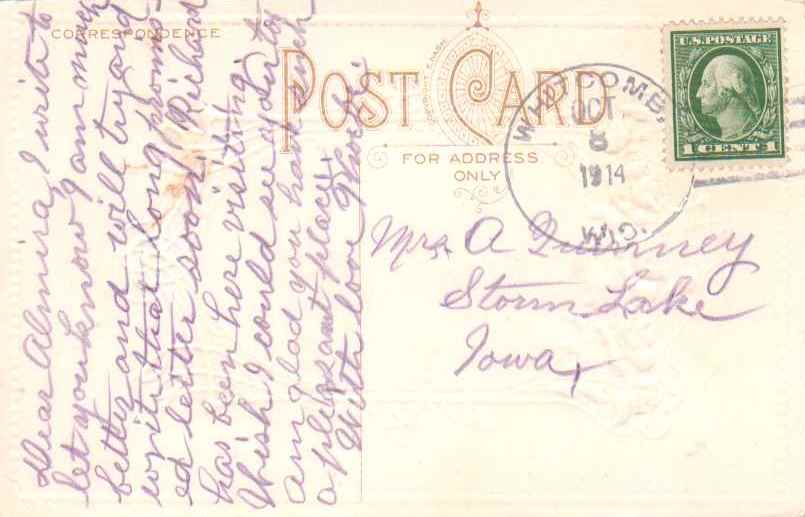 CORRESPONDENCE
POST CARD
FOR ADDRESS
ONLY
U.S. POSTAGE
1 CENT 1
OCT
8
1914
WIS.
Mrs. A Quinney
Storm Lake
Iowa,
Dear Almira, I write to
let you know I am much
better and will try and
write that long promis-
ed letter soon. Richard
has been here visiting
Wish I could see you too
am glad you have such
a pleasant place.
With love